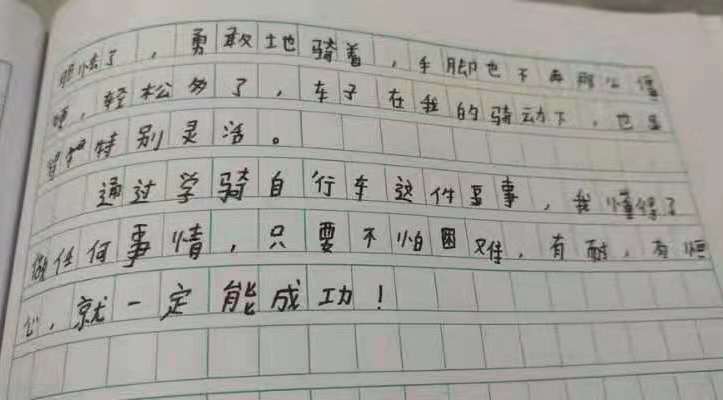 胆怯了，勇敢地骑着，手脚也不再那么僵
硬，轻松多了，车子在我的骑动下，也显
得特别灵活。
通过学骑自行车这件事，我懂得了
做任何事情，只要不怕困难，有耐，有恒
心，就一定能成功！